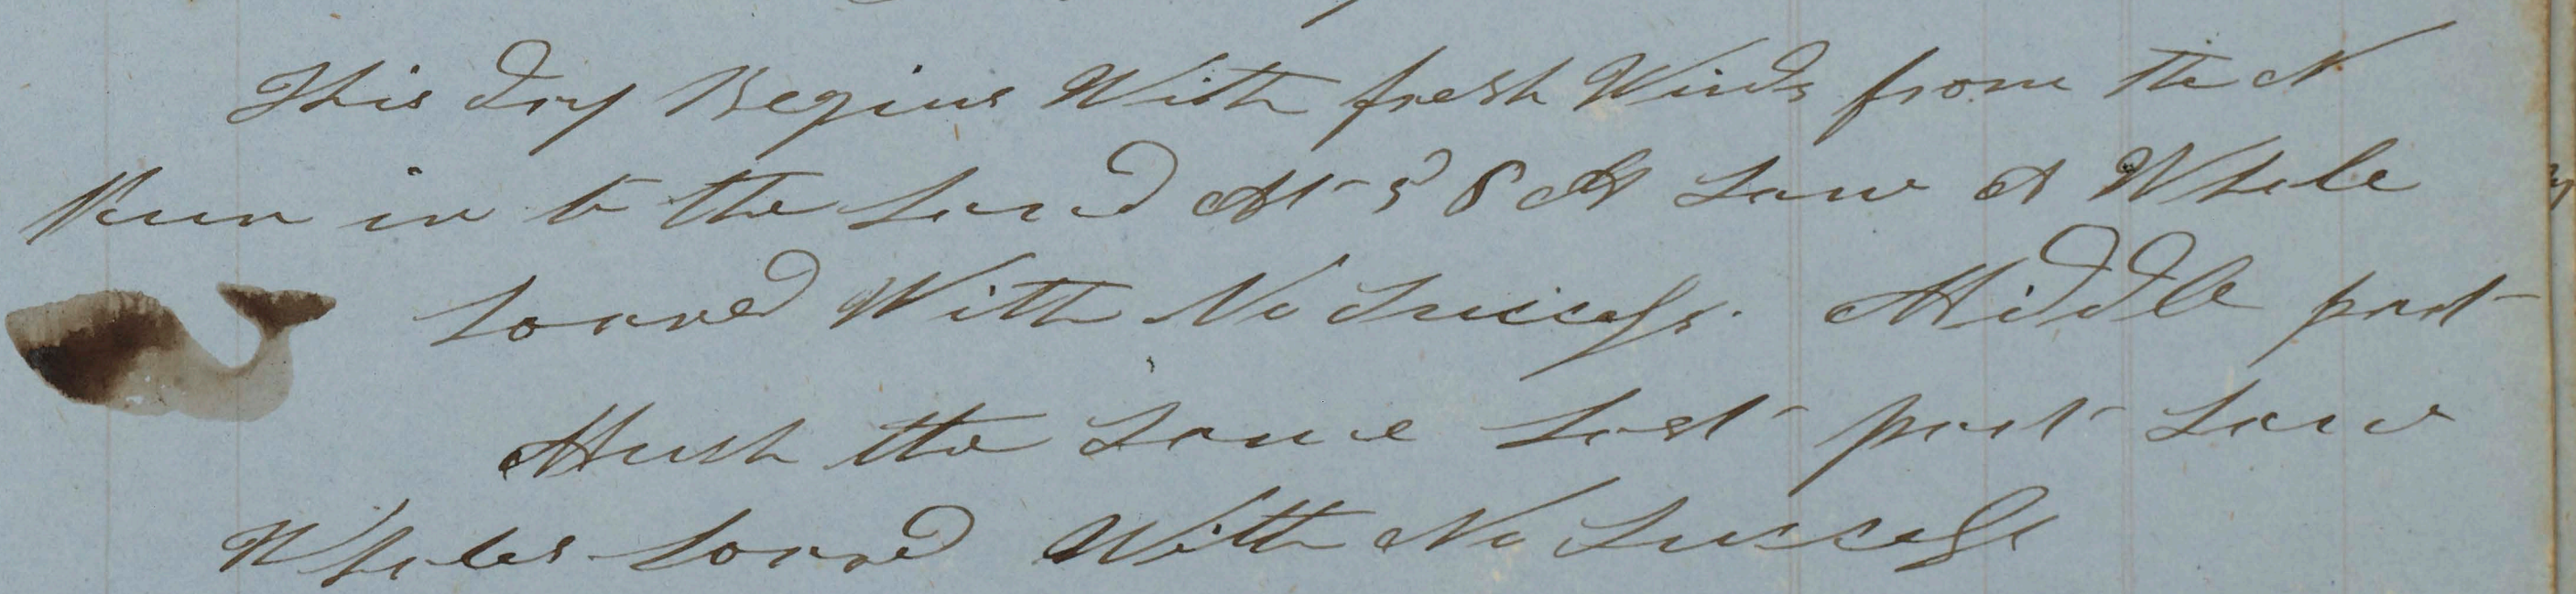 This day Begins With fresh Winds from the N
Run in to the Land At 5 8 M Saw A Whale
Lowed With No Success. Middle part
Much the Same Last part Saw
Whales Lowed With No Success